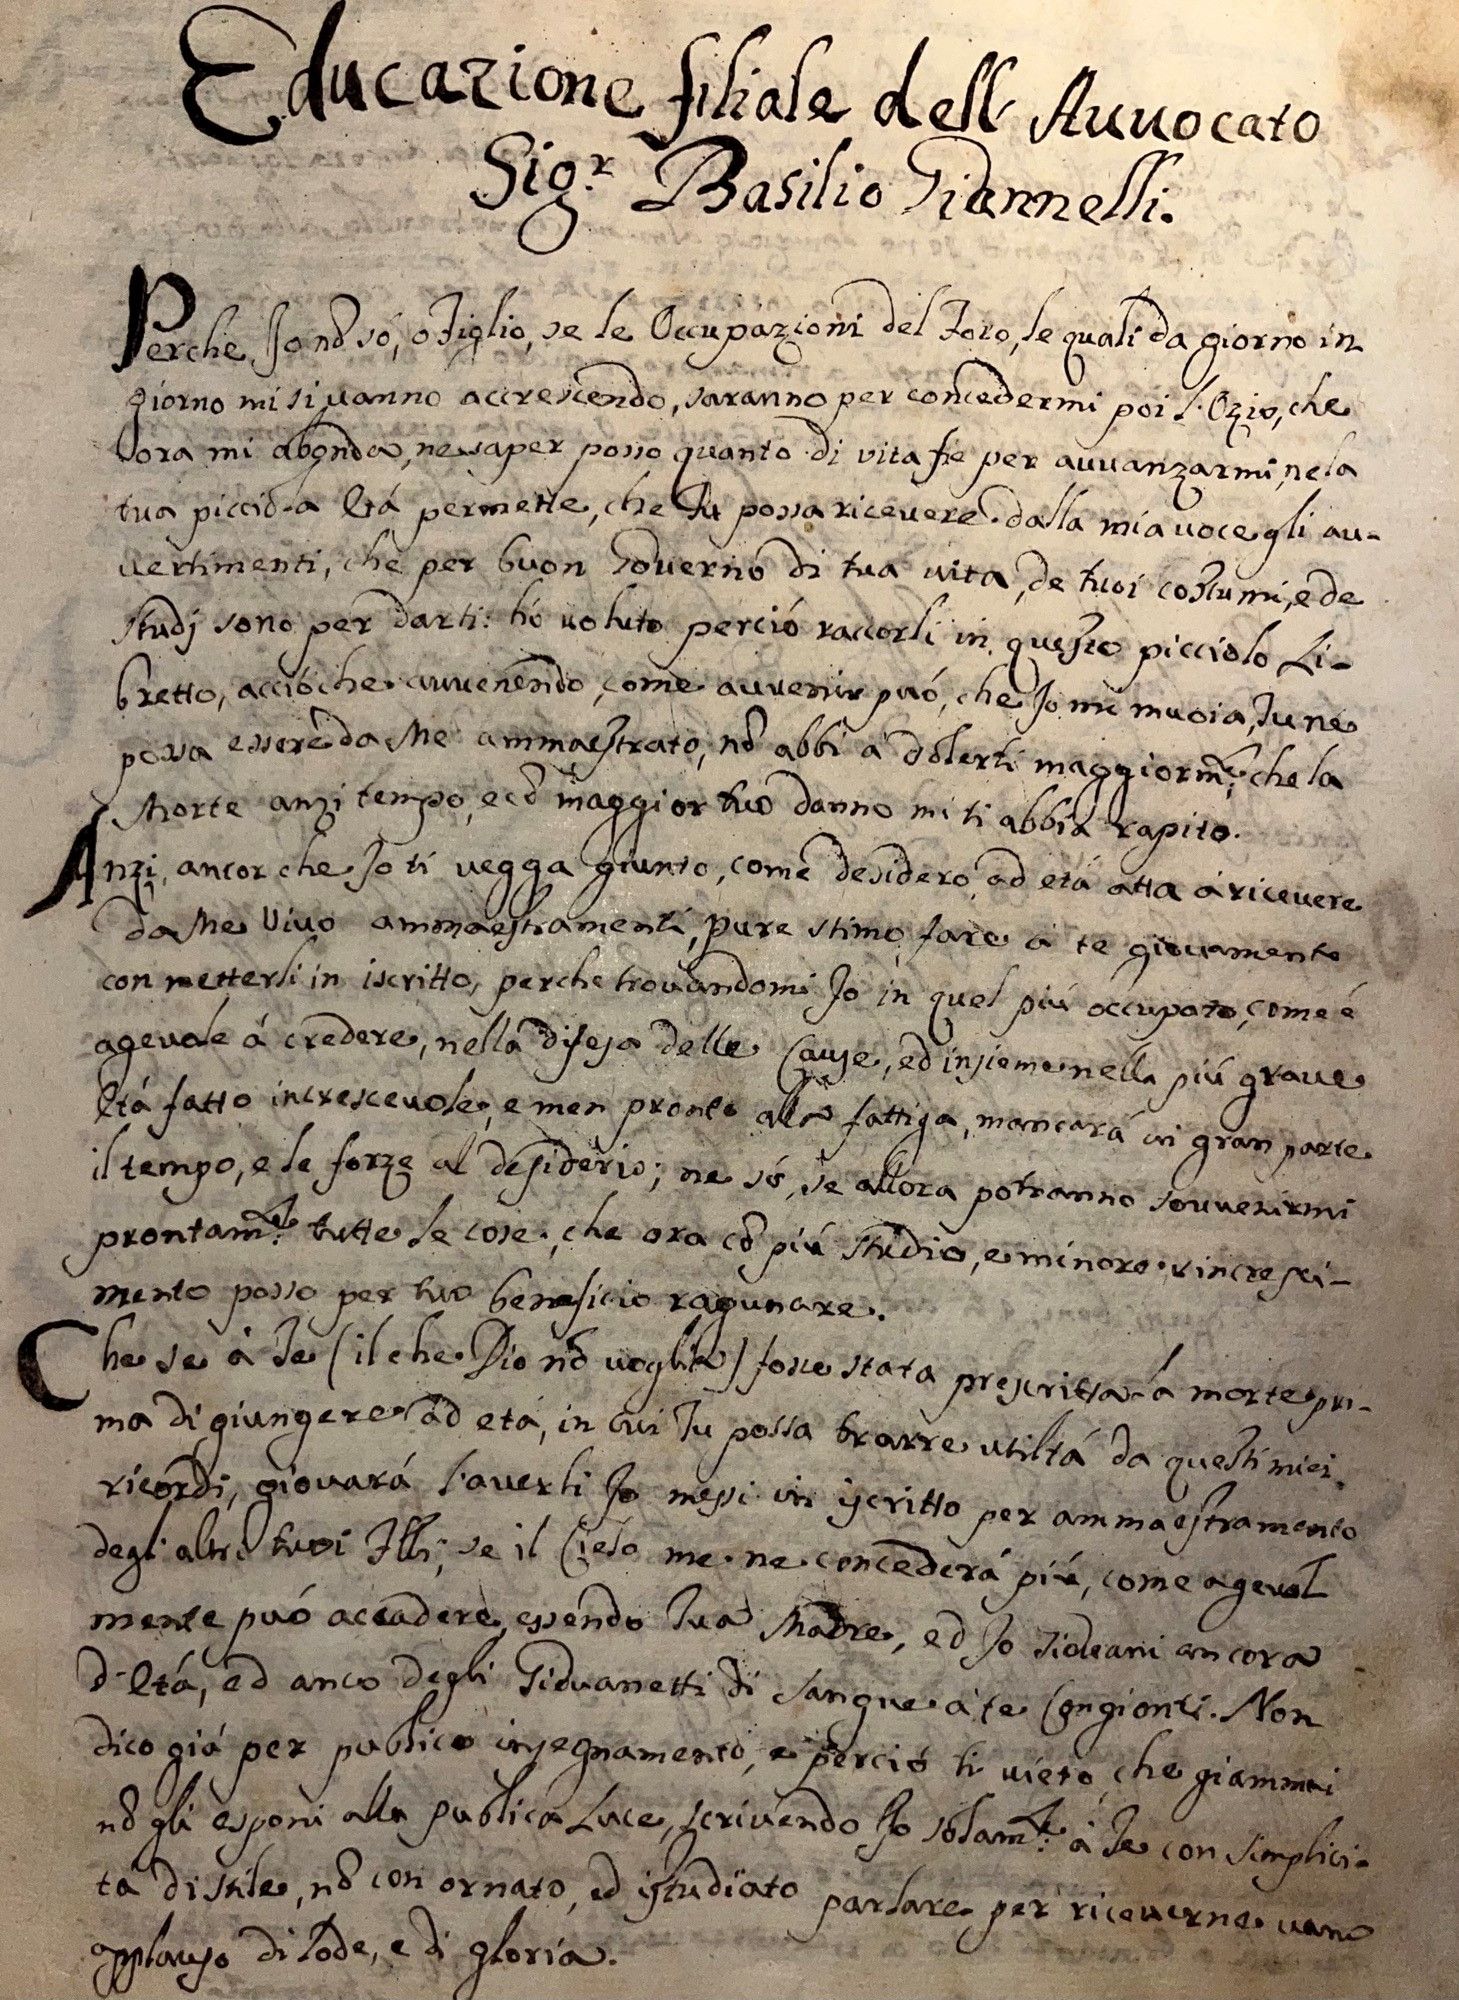 Educazione filiale dell' Auuocato
Sig.r Basilio Giannelli.
Perche Jo nō só, o Figlio, se le Occupazioni del Foro, le quali da giorno in
giorno mi si uanno accrescendo, saranno per concedermi poi l'Ozio, che
ora mi abonda, ne saper posso quanto di vita fie per auuanzarmi, ne la
tua picciola Etá permette, che Tu possa riceuere dalla mia uoce gli au-
uertimenti, che per buon Gouerno di tua uita, de tuoi costumi, e de
studj sono per darti: hó uoluto perció raccorli in questo picciolo Li-
bretto, accióche auuenendo, come auuenir puó, che Jo mi muoia, Tu ne
possa essere da Me ammaestrato, nō abbi á dolerti maggiorm.te, che la
Morte anzi tempo, e cō maggior tuo danno mi ti abbia rapito.
Anzi, ancor che Jo ti uegga giunto, come desidero, ad etá atta á riceuere
da Me Uiuo ammaestramenti, pure stimo fare á te giouamento
con metterli in iscritto, perche trouandomi Jo in quel piú occupato, come é
ageuole á credere, nella difesa delle Cause, ed insieme nella piú graue
Etá fatto incresceuole, e men pronto alla fattiga, mancará in gran parte
il tempo, e le forze al desiderio; ne só, se allora potranno souuenirmi
prontam.te tutte le cose, che ora cō piú studio, e minore rincresci-
mento posso per tuo beneficio ragunare.
Che se á Te (il che Dio nō uoglia) fosse stata prescritta la morte pri-
ma di giungere ad etá, in cui Tu possa trarre utiltá da questi miei
ricordi, giouará l'auerli Jo messi in iscritto per ammaestramento
degli altri tuoi Flli, se il Cielo me ne concederá piú, come ageuol
mente puó accadere, essendo Tua Madre, ed Jo Gioueani ancora
d'Etá, ed anco degli Giouanetti di sangue á te Congionti. Non
dico giá per publico insegnamento, e perció ti uieto, che giammai
nō gli esponi alla publica Luce, scriuendo Jo solam.te á Te con simplici-
tá di stile, nō con ornato, ed istudiato parlare per riceuerne uano
applauso di lode, e di gloria.